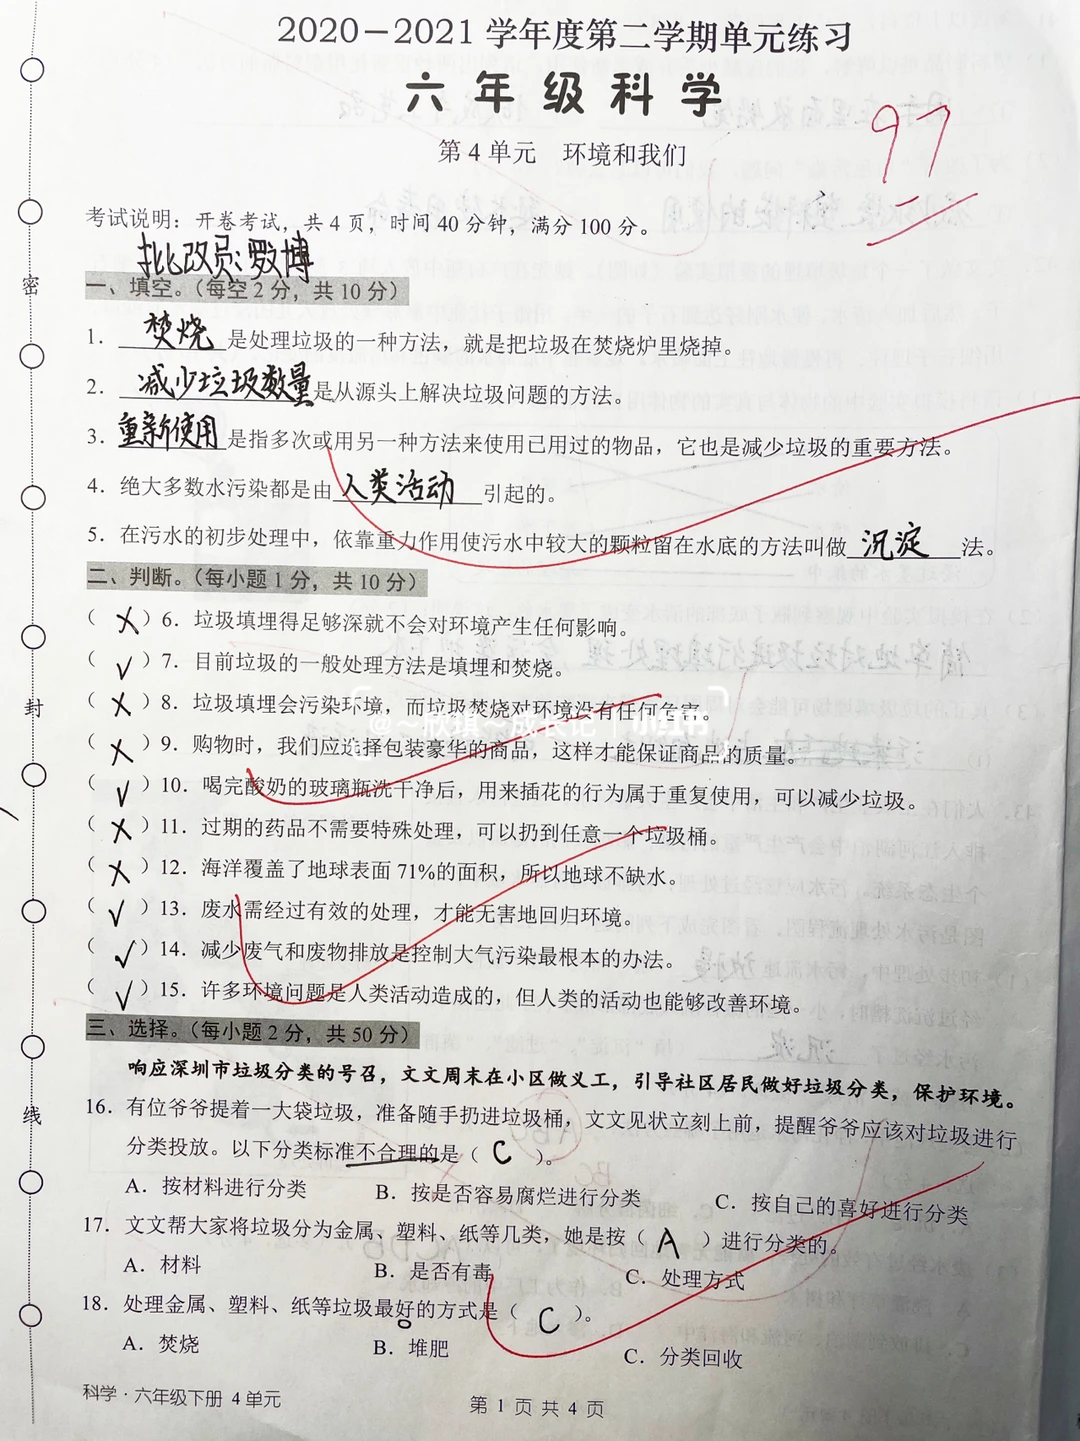 2020-2021学年度第二学期单元练习
六年级科学
97
第4单元 环境和我们
考试说明：开卷考试，共4页，时间40分钟，满分100分。
批改员：罗博
一、填空。（每空2分，共10分）
1. 焚烧是处理垃圾的一种方法，就是把垃圾在焚烧炉里烧掉。
2. 减少垃圾数量是从源头上解决垃圾问题的方法。
3. 重新使用是指多次或用另一种方法来使用已用过的物品，它也是减少垃圾的重要方法。
4. 绝大多数水污染都是由人类活动引起的。
5. 在污水的初步处理中，依靠重力作用使污水中较大的颗粒留在水底的方法叫做沉淀法。
二、判断。（每小题1分，共10分）
（ X ）6. 垃圾填埋得足够深就不会对环境产生任何影响。
（ √ ）7. 目前垃圾的一般处理方法是填埋和焚烧。
（ X ）8. 垃圾填埋会污染环境，而垃圾焚烧对环境没有任何危害。
@～欣琪～成长记 小红书
（ X ）9. 购物时，我们应选择包装豪华的商品，这样才能保证商品的质量。
（ √ ）10. 喝完酸奶的玻璃瓶洗干净后，用来插花的行为属于重复使用，可以减少垃圾。
（ X ）11. 过期的药品不需要特殊处理，可以扔到任意一个垃圾桶。
（ X ）12. 海洋覆盖了地球表面71%的面积，所以地球不缺水。
（ √ ）13. 废水需经过有效的处理，才能无害地回归环境。
（ √ ）14. 减少废气和废物排放是控制大气污染最根本的办法。
（ √ ）15. 许多环境问题是人类活动造成的，但人类的活动也能够改善环境。
三、选择。（每小题2分，共50分）
响应深圳市垃圾分类的号召，文文周末在小区做义工，引导社区居民做好垃圾分类，保护环境。
16. 有位爷爷提着一大袋垃圾，准备随手扔进垃圾桶，文文见状立刻上前，提醒爷爷应该对垃圾进行
分类投放。以下分类标准不合理的是（ C ）。
A. 按材料进行分类 B. 按是否容易腐烂进行分类 C. 按自己的喜好进行分类
17. 文文帮大家将垃圾分为金属、塑料、纸等几类，她是按（ A ）进行分类的。
A. 材料 B. 是否有毒 C. 处理方式
18. 处理金属、塑料、纸等垃圾最好的方式是（ C ）。
A. 焚烧 B. 堆肥 C. 分类回收
科学·六年级下册 4单元
第1页共4页
密
封
线